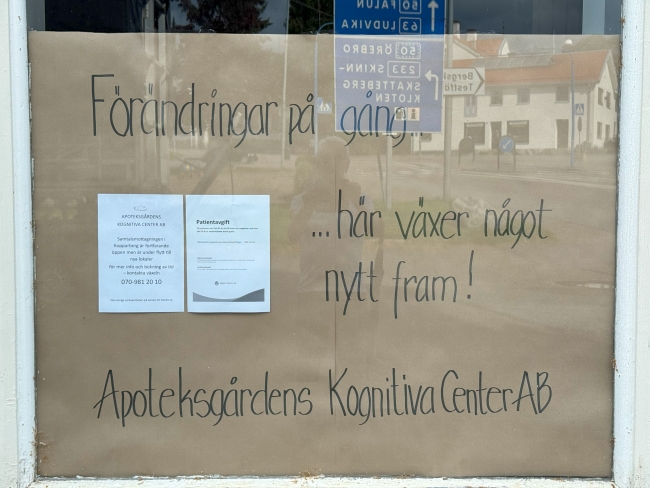 50 FALUN
63 LUDVIKA
50 ÖREBRO
233 SKINN-
SKATTEBERG
KLOTEN
Förändringar på gång...
...här växer något
nytt fram!
APOTEKSGÅRDENS
KOGNITIVA CENTER AB
Samtalsmottagningen i
Kopparberg är fortfarande
öppen men är under flytt till
nya lokaler.
för mer info och bokning av tid
- kontakta växeln
070-981 20 10
Patientavgift
Apoteksgårdens Kognitiva Center AB